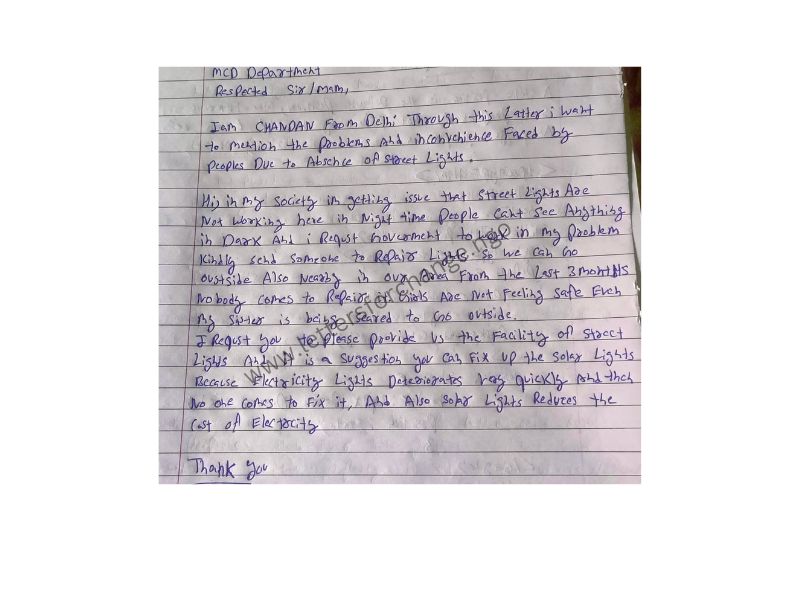 MCD Department
Respected Sir/mam,
I am CHANDAN From Delhi Through this Latter i want
to mention the Problems And inconvenience Faced by
Peoples Due to Absence of street Lights.
Hi, in my Society im getting issue that Street Lights Are
Not working here in Night time People Cant See Anything
in Dark And i Requst Government to look in my Problem
Kindly send Someone to Repair Lights So we can Go
outside Also Nearby in our area From the Last 3 months
Nobody comes to Repaire it Girls Are Not Feeling Safe Even
My Sister is being Scared to Go outside.
I Requst you to Please Provide us the Facility of Street
Lights And it is a Suggestion you can Fix up the Solar Lights
Because Electricity Lights Deteriorates very quickly And then
No one comes to Fix it, And Also Solar Lights Reduces the
Cost of
Thank you
www.lettersforchange.ngo